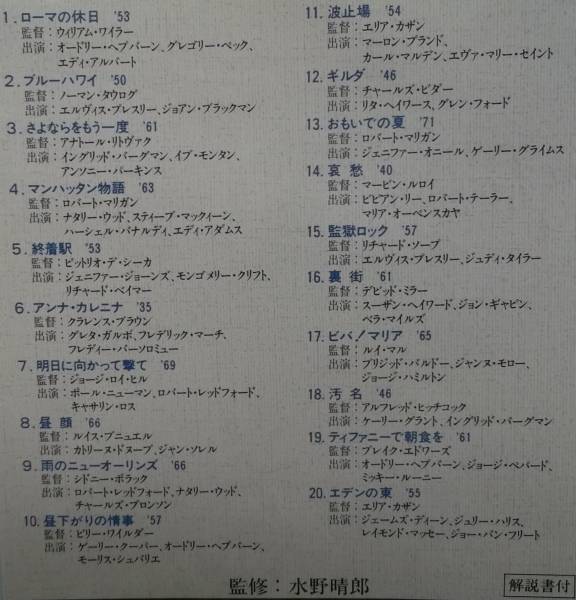 1.ローマの休日 '53
監督：ウィリアム・ワイラー
出演：オードリー・ヘプバーン、グレゴリー・ペック、
エディ・アルバート
2.ブルーハワイ '50
監督：ノーマン・タウログ
出演：エルヴィス・プレスリー、ジョアン・ブラックマン
3.さよならをもう一度 '61
監督：アナトール・リトヴァク
出演：イングリッド・バーグマン、イブ・モンタン、
アンソニー・パーキンス
4.マンハッタン物語 '63
監督：ロバート・マリガン
出演：ナタリー・ウッド、スティーブ・マックィーン、
ハーシェル・バナルディ、エディ・アダムス
5.終着駅 '53
監督：ビットリオ・デ・シーカ
出演：ジェニファー・ジョーンズ、モンゴメリー・クリフト、
リチャード・ベイマー
6.アンナ・カレニナ '35
監督：クラレンス・ブラウン
出演：グレタ・ガルボ、フレデリック・マーチ、
フレディー・バーソロミュー
7.明日に向かって撃て '69
監督：ジョージ・ロイ・ヒル
出演：ポール・ニューマン、ロバート・レッドフォード、
キャサリン・ロス
8.昼顔 '66
監督：ルイス・ブニュエル
出演：カトリーヌ・ドヌーブ、ジャン・ソレル
9.雨のニューオーリンズ '66
監督：シドニー・ポラック
出演：ロバート・レッドフォード、ナタリー・ウッド、
チャールズ・ブロンソン
10.昼下がりの情事 '57
監督：ビリー・ワイルダー
出演：ゲーリー・クーパー、オードリー・ヘプバーン、
モーリス・シュバリエ
11.波止場 '54
監督：エリア・カザン
出演：マーロン・ブランド、
カール・マルデン、エヴァ・マリー・セイント
12.ギルダ '46
監督：チャールズ・ビダー
出演：リタ・ヘイワース、グレン・フォード
13.おもいでの夏 '71
監督：ロバート・マリガン
出演：ジェニファー・オニール、ゲーリー・グライムス
14.哀愁 '40
監督：マービン・ルロイ
出演：ビビアン・リー、ロバート・テーラー、
マリア・オーペンスカヤ
15.監獄ロック '57
監督：リチャード・ソープ
出演：エルヴィス・プレスリー、ジュディ・タイラー
16.裏街 '61
監督：デビッド・ミラー
出演：スーザン・ヘイワード、ジョン・ギャビン、
ベラ・マイルズ
17.ビバ！マリア '65
監督：ルイ・マル
出演：ブリジッド・バルドー、ジャンヌ・モロー、
ジョージ・ハミルトン
18.汚名 '46
監督：アルフレッド・ヒッチコック
出演：ケーリー・グラント、イングリッド・バーグマン
19.ティファニーで朝食を '61
監督：ブレイク・エドワーズ
出演：オードリー・ヘプバーン、ジョージ・ペパード、
ミッキー・ルーニー
20.エデンの東 '55
監督：エリア・カザン
出演：ジェームズ・ディーン、ジュリー・ハリス、
レイモンド・マッセー、ジョー・バン・フリート
監修：水野晴郎
解説書付